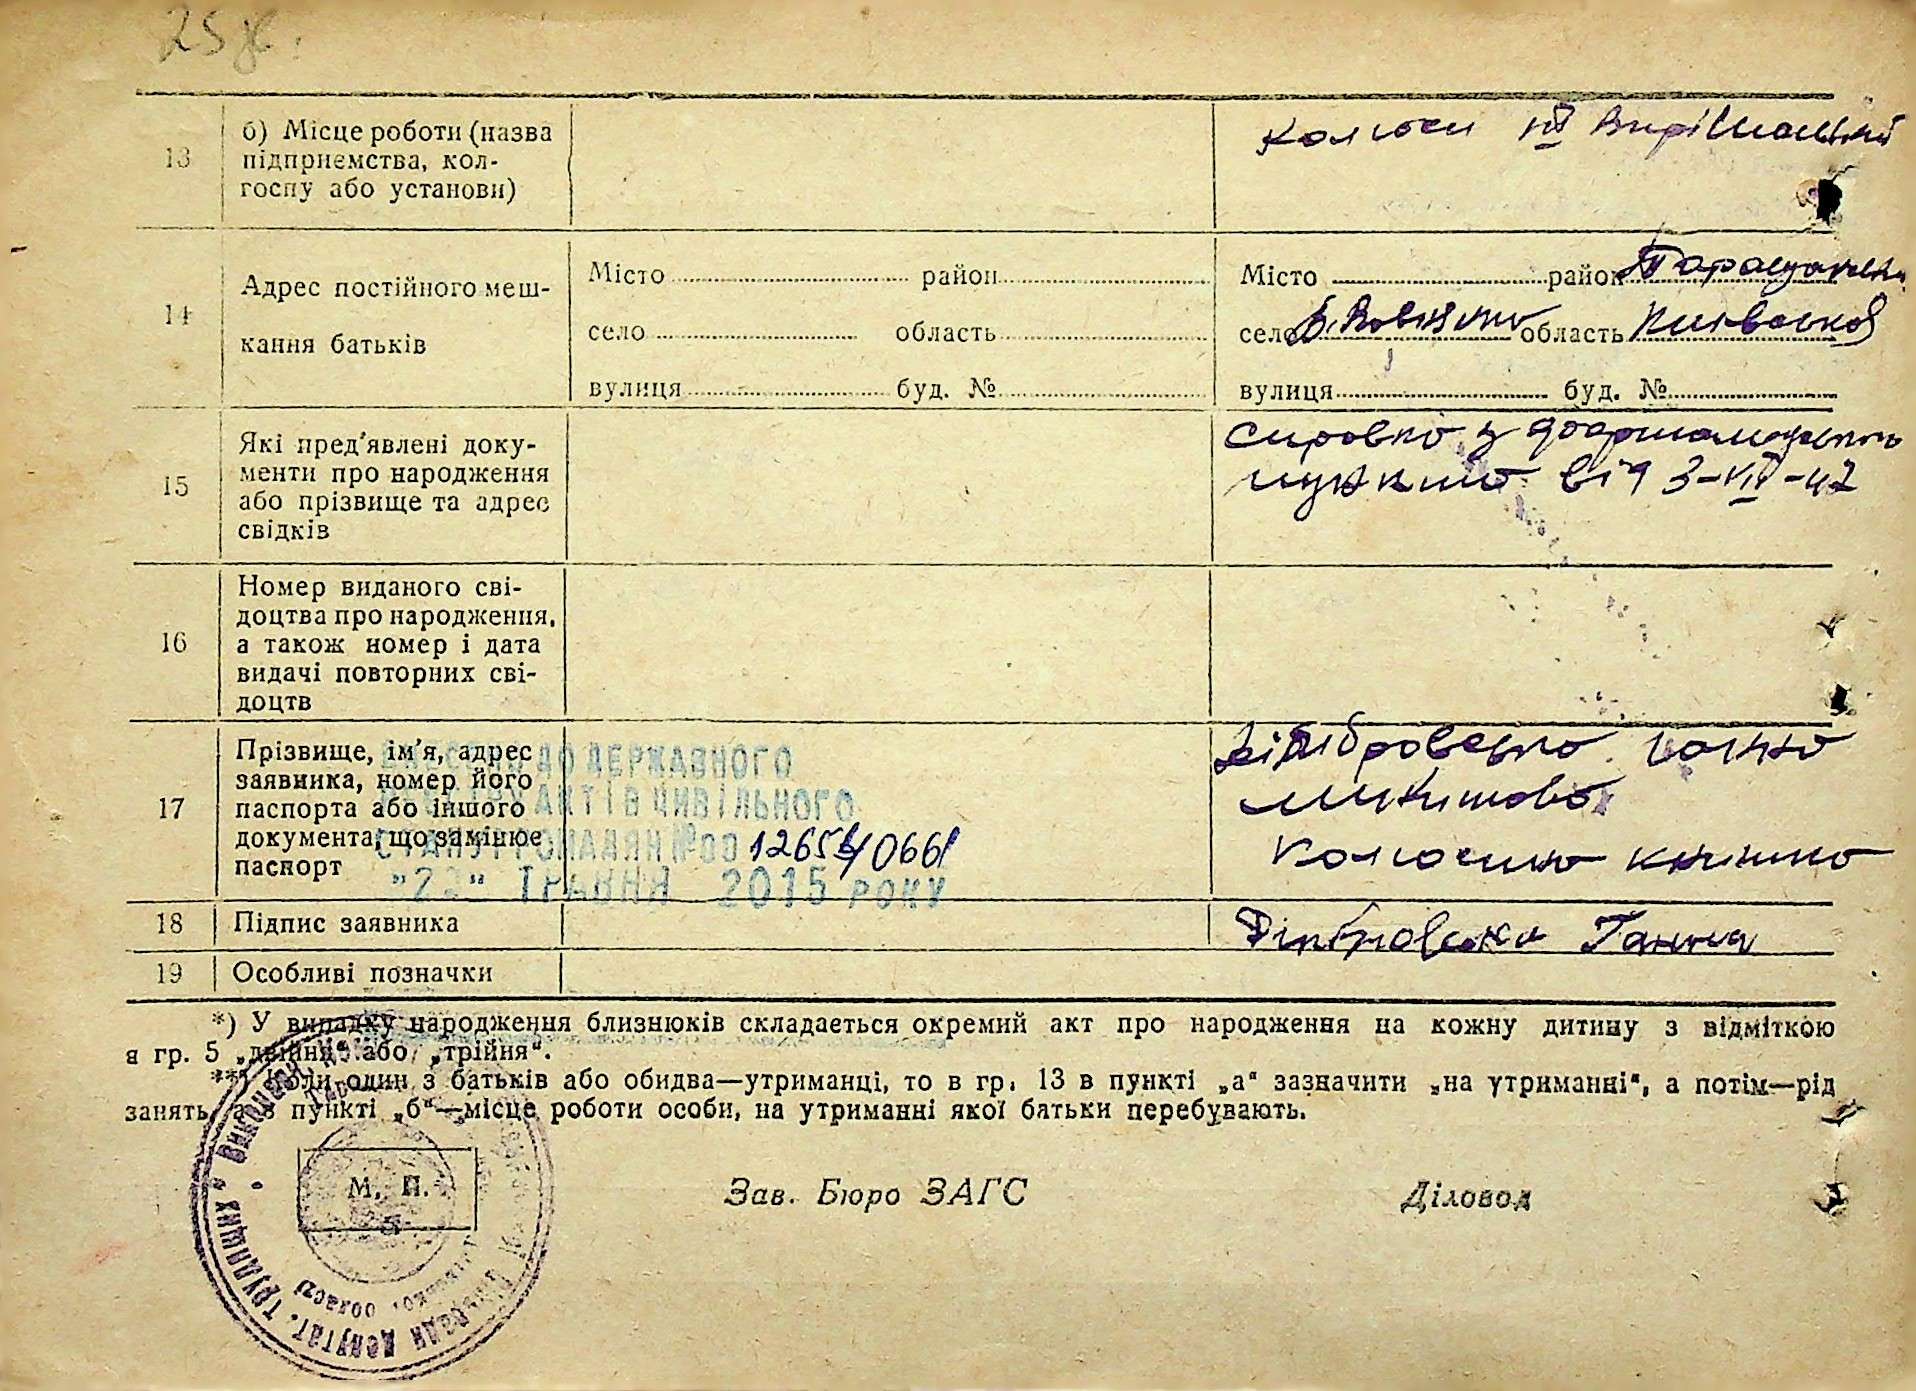 25 ж.
13
б) Місце роботи (назва
підприємства, кол-
госпу або установи)
колгосп ІІІ Вирішальний
14
Адрес постійного меш-
кання батьків
Місто район
село область
вулиця буд. №
Місто район Таращанськ
село область Київської
вулиця буд. №
15
Які пред'явлені доку-
менти про народження
або прізвище та адрес
свідків
Справка з
пункта від 3-VII-47
16
Номер виданого сві-
доцтва про народження,
а також номер і дата
видачі повторних сві-
доцтв
17
Прізвище, ім'я, адрес
заявника, номер його
паспорта або іншого
документа, що замінює
паспорт
ВНЕСЕНО ДО ДЕРЖАВНОГО
РЕЄСТРУ АКТІВ ЦИВІЛЬНОГО
СТАНУ ГРОМАДЯН №00
"22" ТРАВНЯ 2015 РОКУ
Дібровська Ганна
Микитова
Колгоспна книжка
18
Підпис заявника
Діпбровська Ганна
19
Особливі позначки
*) У випадку народження близнюків складається окремий акт про народження на кожну дитину з відміткою
в гр. 5 „двійня" або „трійня".
**) Коли один з батьків або обидва—утриманці, то в гр. 13 в пункті „а" зазначити „на утриманні", а потім—рід
занять, а в пункті „б"—місце роботи особи, на утриманні якої батьки перебувають.
М. П.
Зав. Бюро ЗАГС
Діловод